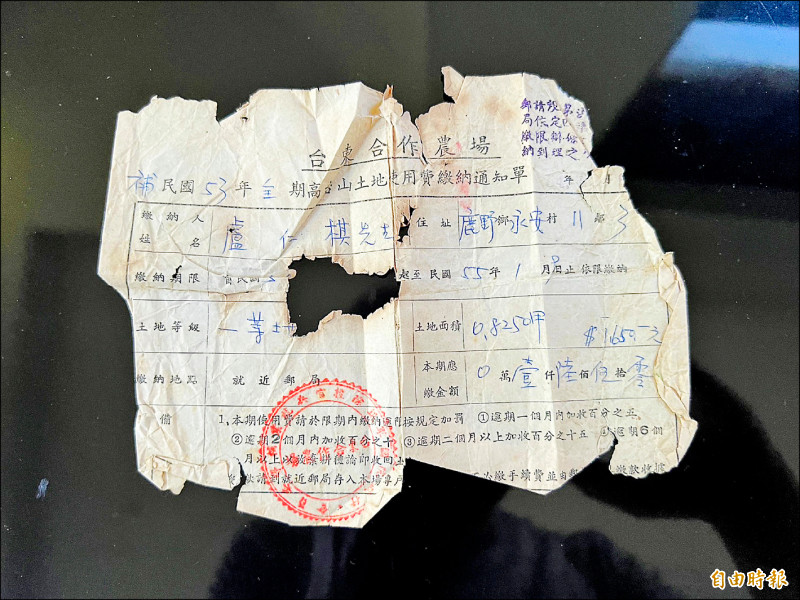 郵請設
局依定
繳限辦
納到理之
台東合作農場
補民國53年全期高 山土地使用費繳納通知單 年 月
繳納人姓名 盧仁棋先生 住址 鹿野鄉永安村11鄰3
繳納期限 自民國5 起至民國55年1月 日止依限繳納
土地等級 一等 土地面積 0.8250甲 $1650.元
繳納地點 就近郵局 本期應繳金額 0萬壹仟陸佰伍拾零
備
1.本期使用費請於限期內繳納逾期按規定加罰 ①逾期一個月內加收百分之五
②逾期2個月內加收百分之十 ③逾期二個月以上加收百分之十五 逾期6個
月以上以放棄耕種論即收回土
款請到就近郵局存入本場專戶 必繳手續費並由郵 繳款收據
自由時報